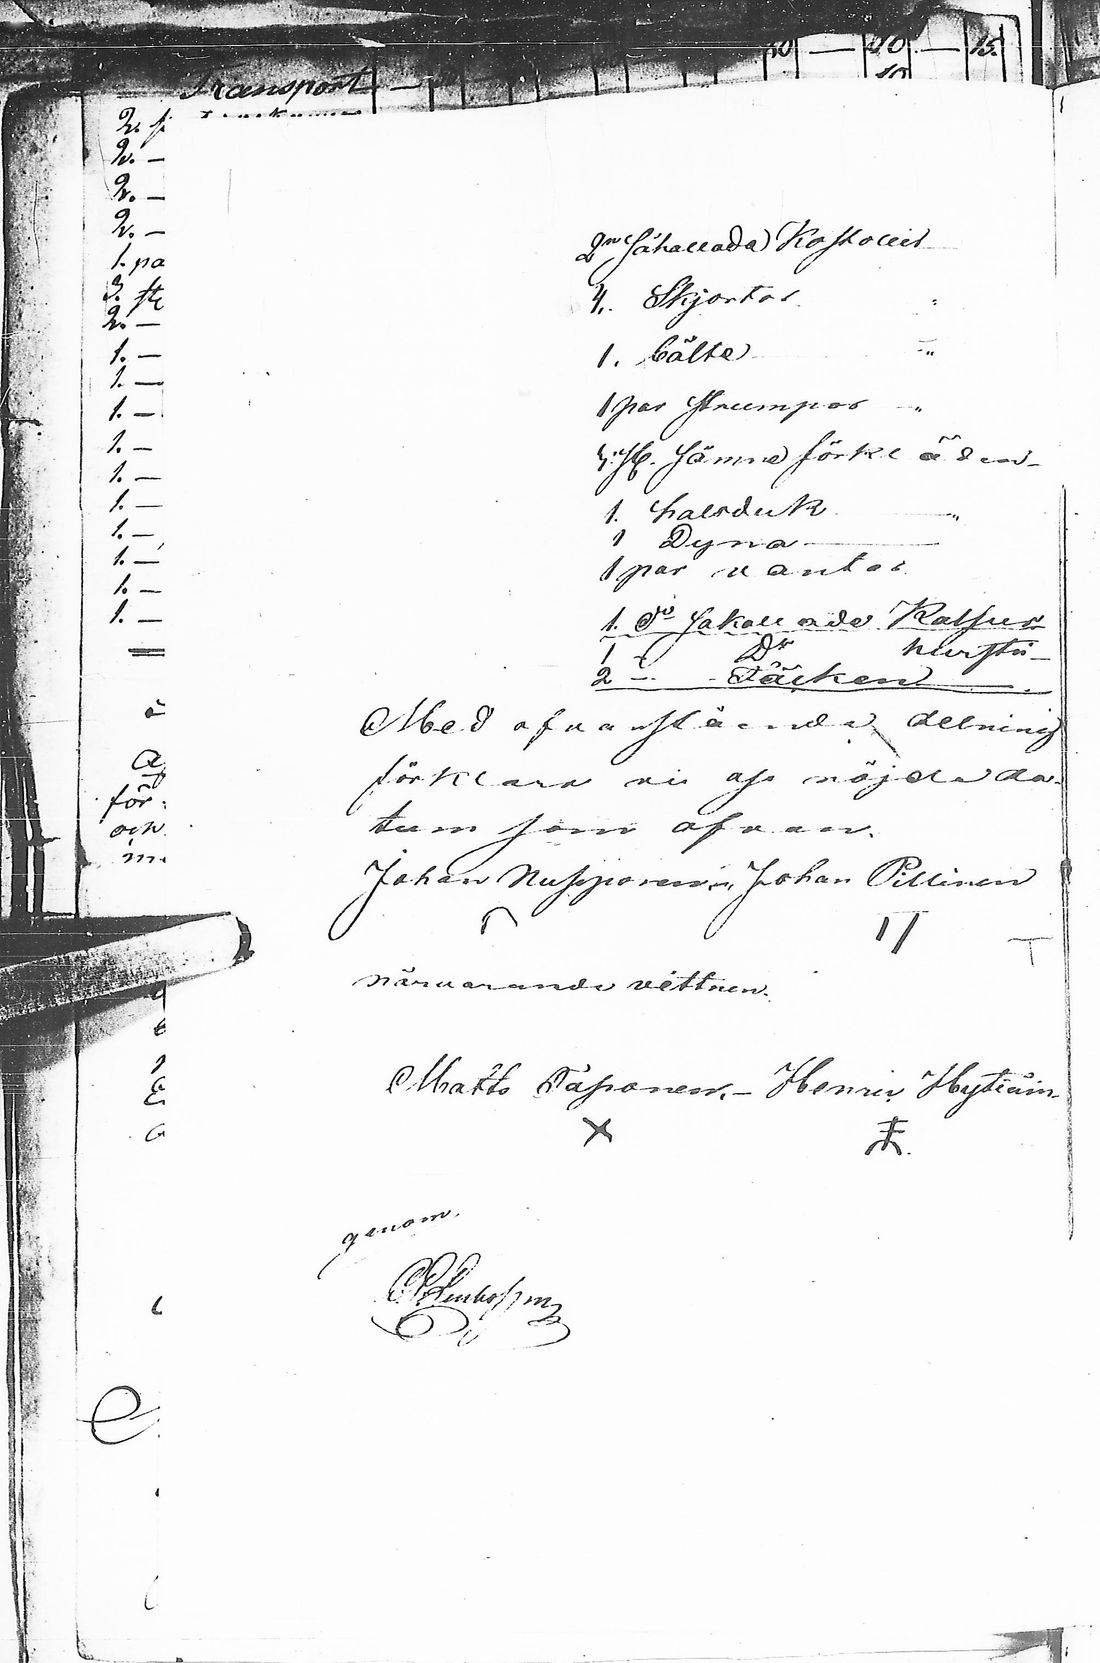 Transport
10 — 40 — 15.
10
2.
2. —
2. —
2. —
1. pa
3. st
2. —
1. —
1. —
1. —
1. —
1. —
1. —
1. —
1. —
1. —
1. —
2 såkallada Kostoulit
4. Skjortor "
1. bälte "
1 par strumpor "
st. sämne förkläden
1. halsduk "
1 Dyna
1 par vantar
1. Do såkallade
1 Do hursti
2 Täcken
Med ofvanstående delning
förklara vi oss nöjda da-
tum som ofvan.
Johan Nusporen Johan Pillinen
närvarande vittnen.
Matts Taponen. – Henric Hytiäin
genom.
för
och